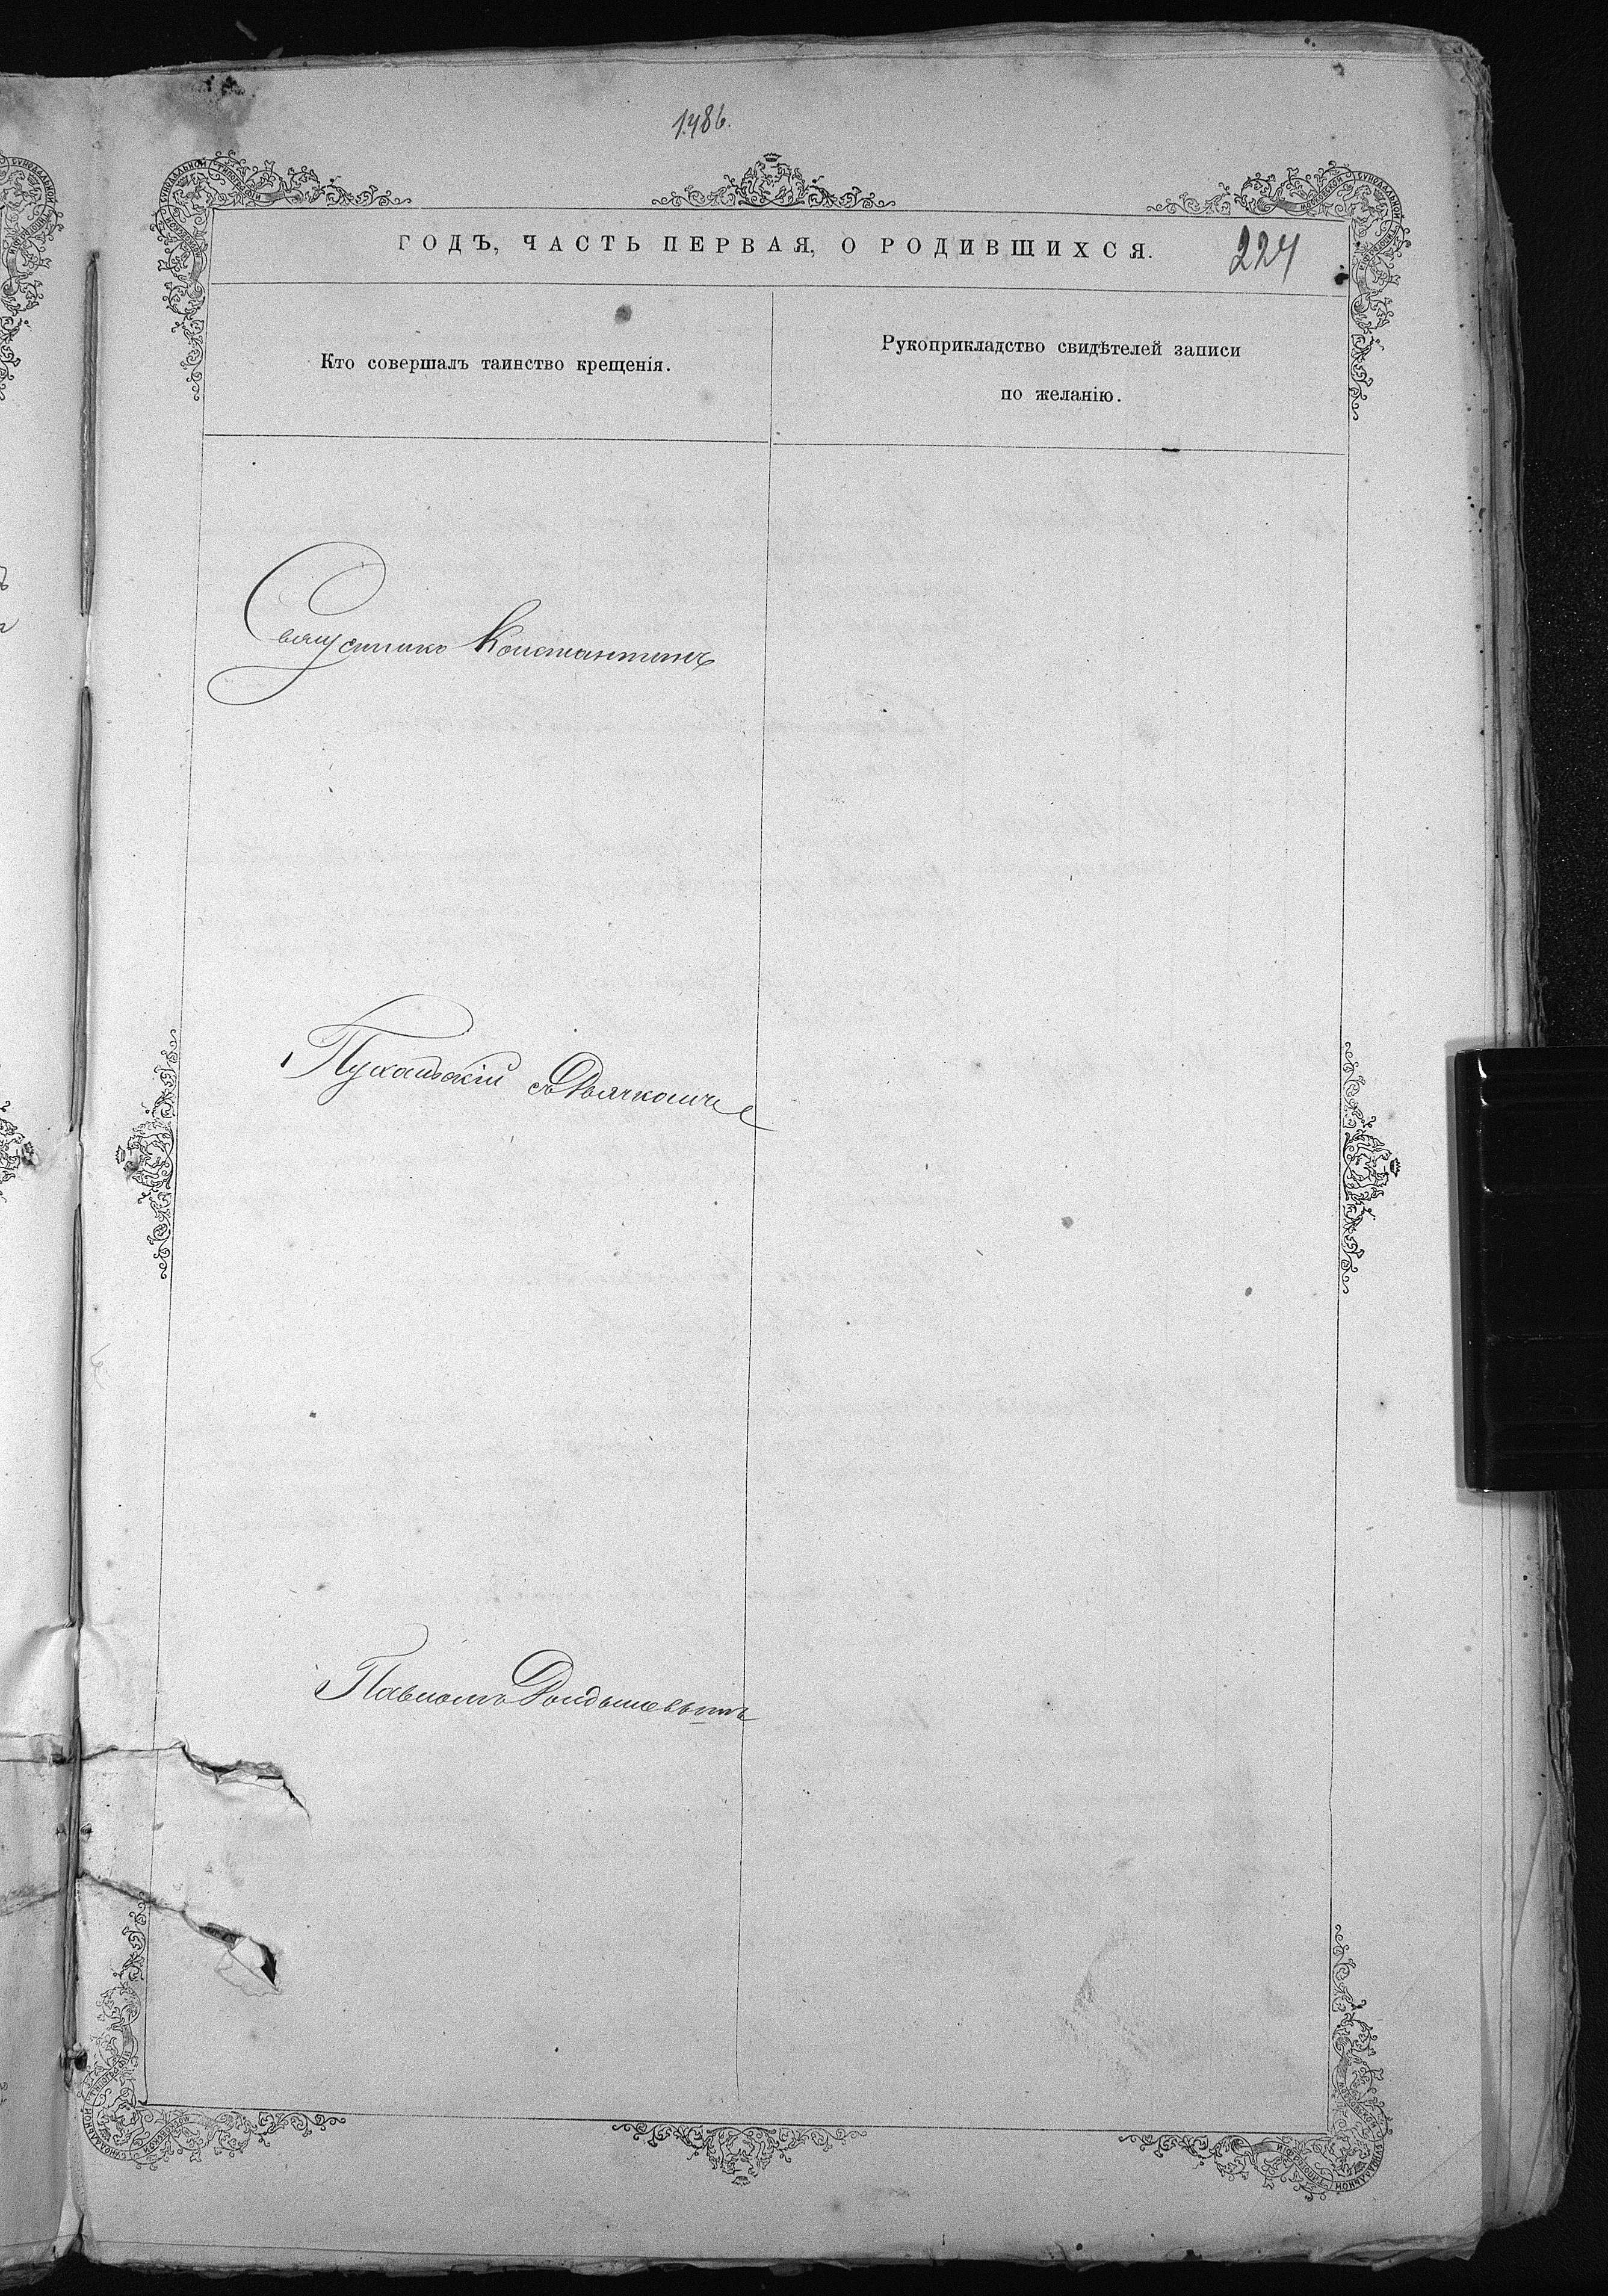 1486.
ГОДЪ, ЧАСТЬ ПЕРВАЯ, О РОДИВШИХСЯ.
224
Кто совершалъ таинство крещенія.
Рукоприкладство свидѣтелей записи
по желанію.
Священникъ Константинъ
Пухальскій съ Дьячкомъ
Павломъ